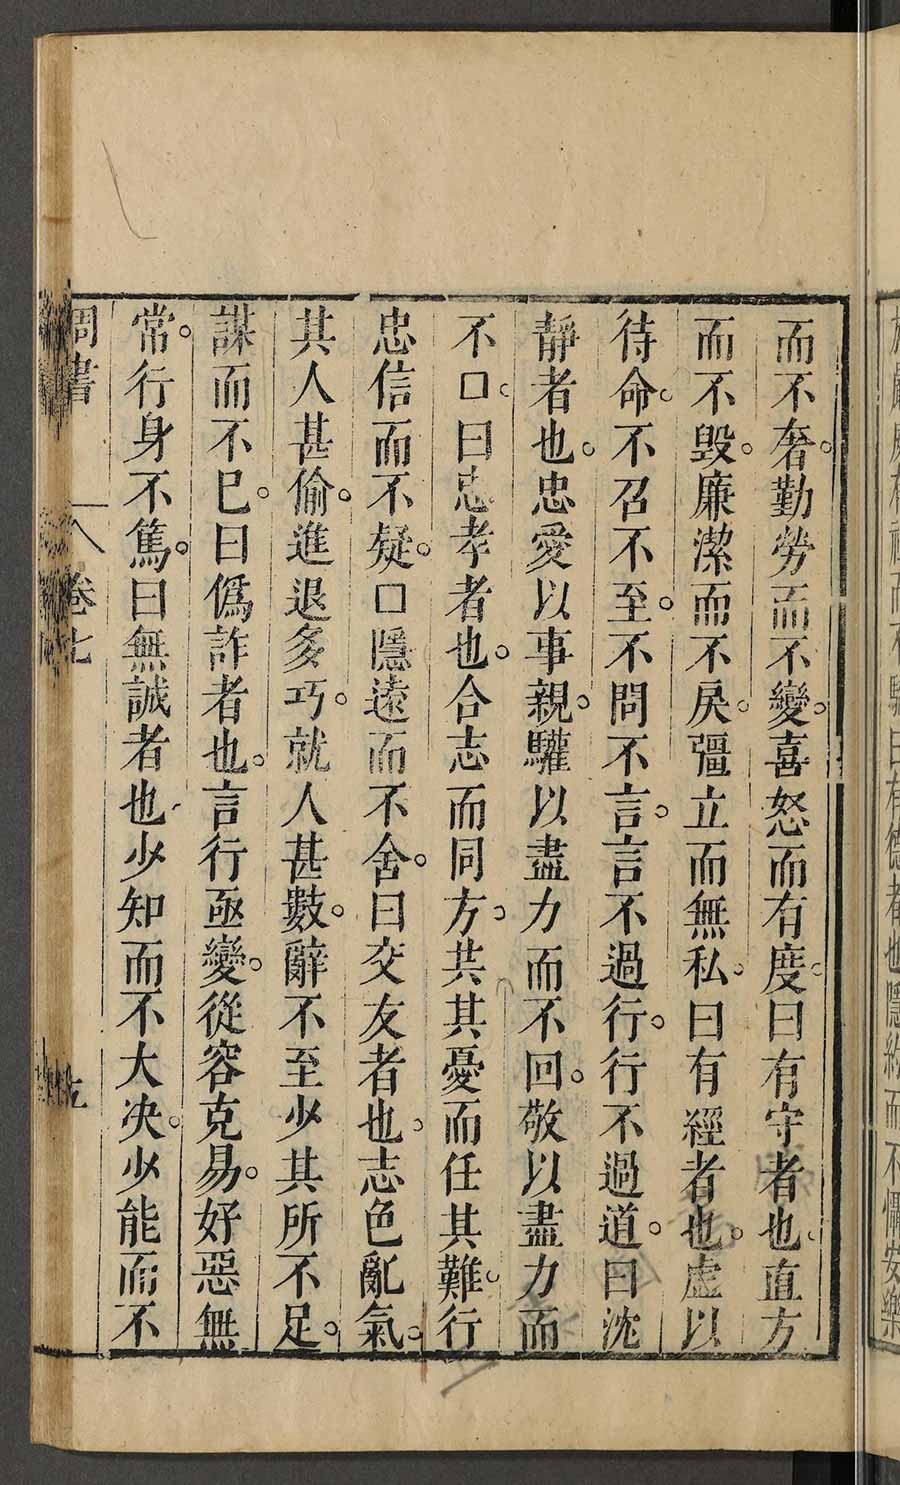 於處處
驕曰有德者也隱約而不懾安樂
而不奢勤勞而不變喜怒而有度曰有守者也直方
而不毀廉潔而不戾彊立而無私曰有經者也虛以
待命不召不至不問不言言不過行行不過道曰沈
靜者也忠愛以事親驩以盡力而不回敬以盡力而
不口曰忠孝者也合志而同方共其憂而任其難行
忠信而不疑口隱遠而不舍曰交友者也志色亂氣
其人甚偷進退多巧就人甚數辭不至少其所不足
謀而不已曰偽詐者也言行亟變從容克易好惡無
常行身不篤曰無誠者也少知而不大決少能而不
周書 卷七 九